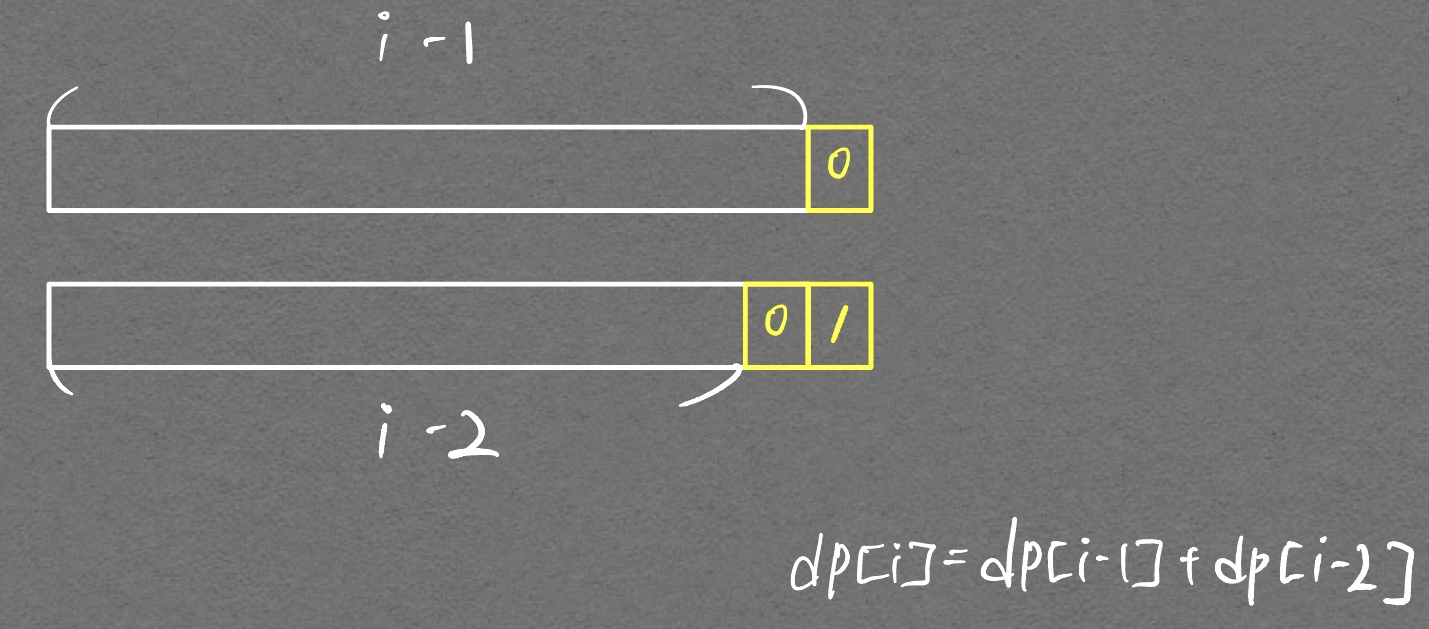 i-1
0
0 1
i-2
dp[i]=dp[i-1]+dp[i-2]